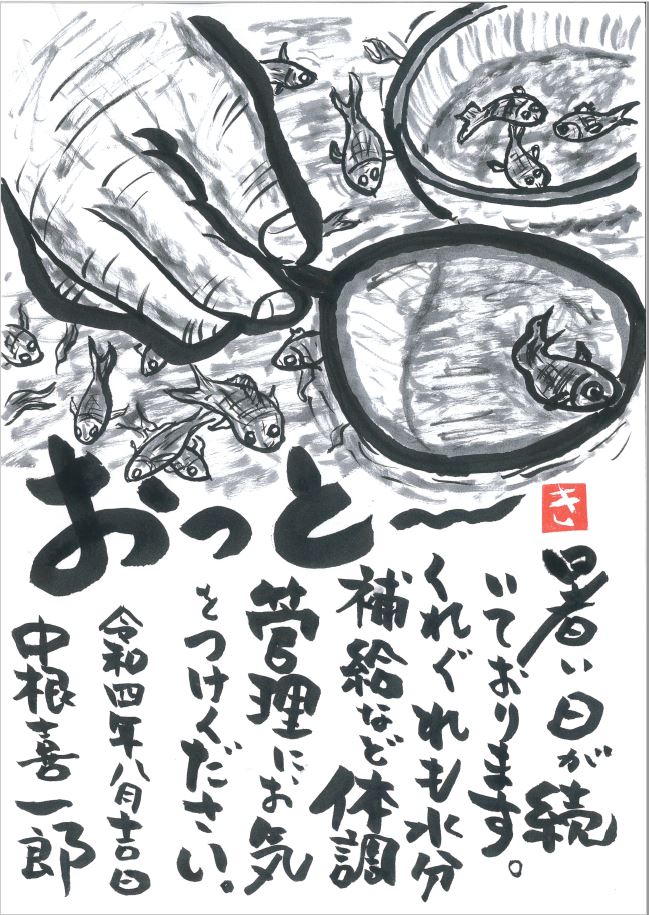 おっと〜
き
暑い日が続
いております。
くれぐれも水分
補給など体調
管理にお気
をつけください。
令和四年八月吉日
中根喜一郎